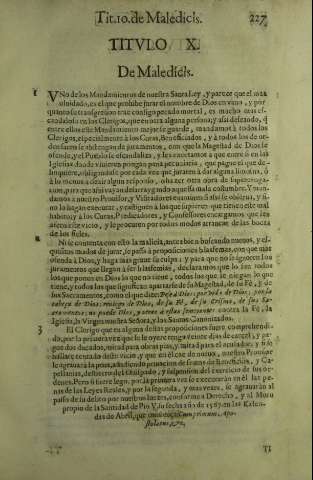 Tit.10. de Maledicis. 227
TITVLO X.
De Maledicis.
1 VNo de los Mandamientos de nuestra Santa Ley, y parece que el mas
olvidado, es el que prohibe jurar el nombre de Dios en vano, y por
quanto su transgression trae consigo pecado mortal, es mucho mas es-
candalosa en los Clerigos, que en otra alguna persona; y assi deseando, q̃
entre ellos este Mandamiento mejor se guarde, mandamos à todos los
Clerigos, especialmente à los Curas, Beneficiados, y à todos los de or-
den sacro se abstengan de juramentos, con que la Magestad de Dios se
ofende, y el Pueblo se escandaliza, y les
Iglesias
à lo menos à dezir algun responso, ò hazer otra obra de supereroga-
cion, para que assi vayan desarraygando aquesta mala costumbre. Y man-
damos à nuestro Provisor, y Visitadores
no lo hagan executar, y castiguen à los que supieren que tienen este mal
habito; y à los Curas, Predicadores, y Confessores encargamos que
este vicio, y le procuren por todos modos arrancar de las bocas
de los fieles.
2 Ni se contenta con esto la malicia, antes bien buscando nuevos, y es-
quisitos modos de jurar, se passa à proposiciones blasfemas, con que mas
ofende à Dios, y haga mas grave su culpa: y para que no se ignoren los
juramentos que llegan à ser blasfemias, declaramos que lo son todos
los que ponen en Dios lo que no tiene, todos los que le niegan lo que
tiene, y todos los que significan apartarse de su Magestad, de la Fè, y de
los Sacramentos, como el que dize: Pese à Dios: por vida de Dios: por la
cabeza de Dios: reniego de Dios, de su Fè, de su Crisma, de sus Sa-
cramentos: no puede Dios, y otros à estos semejantes contra la Fè, la
Iglesia, la Virgen nuestra Señora, y los Santos Canonizados.
3 El Clerigo que en alguna destas proposiciones fuere comprehendi-
do, por la primera vez que se le oyere tenga veinte dias de carcel, y pa-
gue dos ducados, mitad para obras pias, y mitad para el
este vicio, y que en el cae de nuevo, nuestro Provisor
le agravarà la pena, añadiendo privacion de frutos de Beneficios, y Ca-
pellanias, destierro del Obispado, y suspension del exercicio de sus or-
denes. Pero si fuere lego, por la primera vez se executaràn en èl las pe-
nas de las Leyes Reales, y por la segunda, y mas vezes, se agravaràn al
passo de su delito por nuestros Iuezes, conforme à Derecho, y al Motu
proprio de la Santidad de Pio V. su fecha año de 1567. en las Kalen-
das de Abril, que comiença: Cum primum Apo-
stolatus, &c.
TI